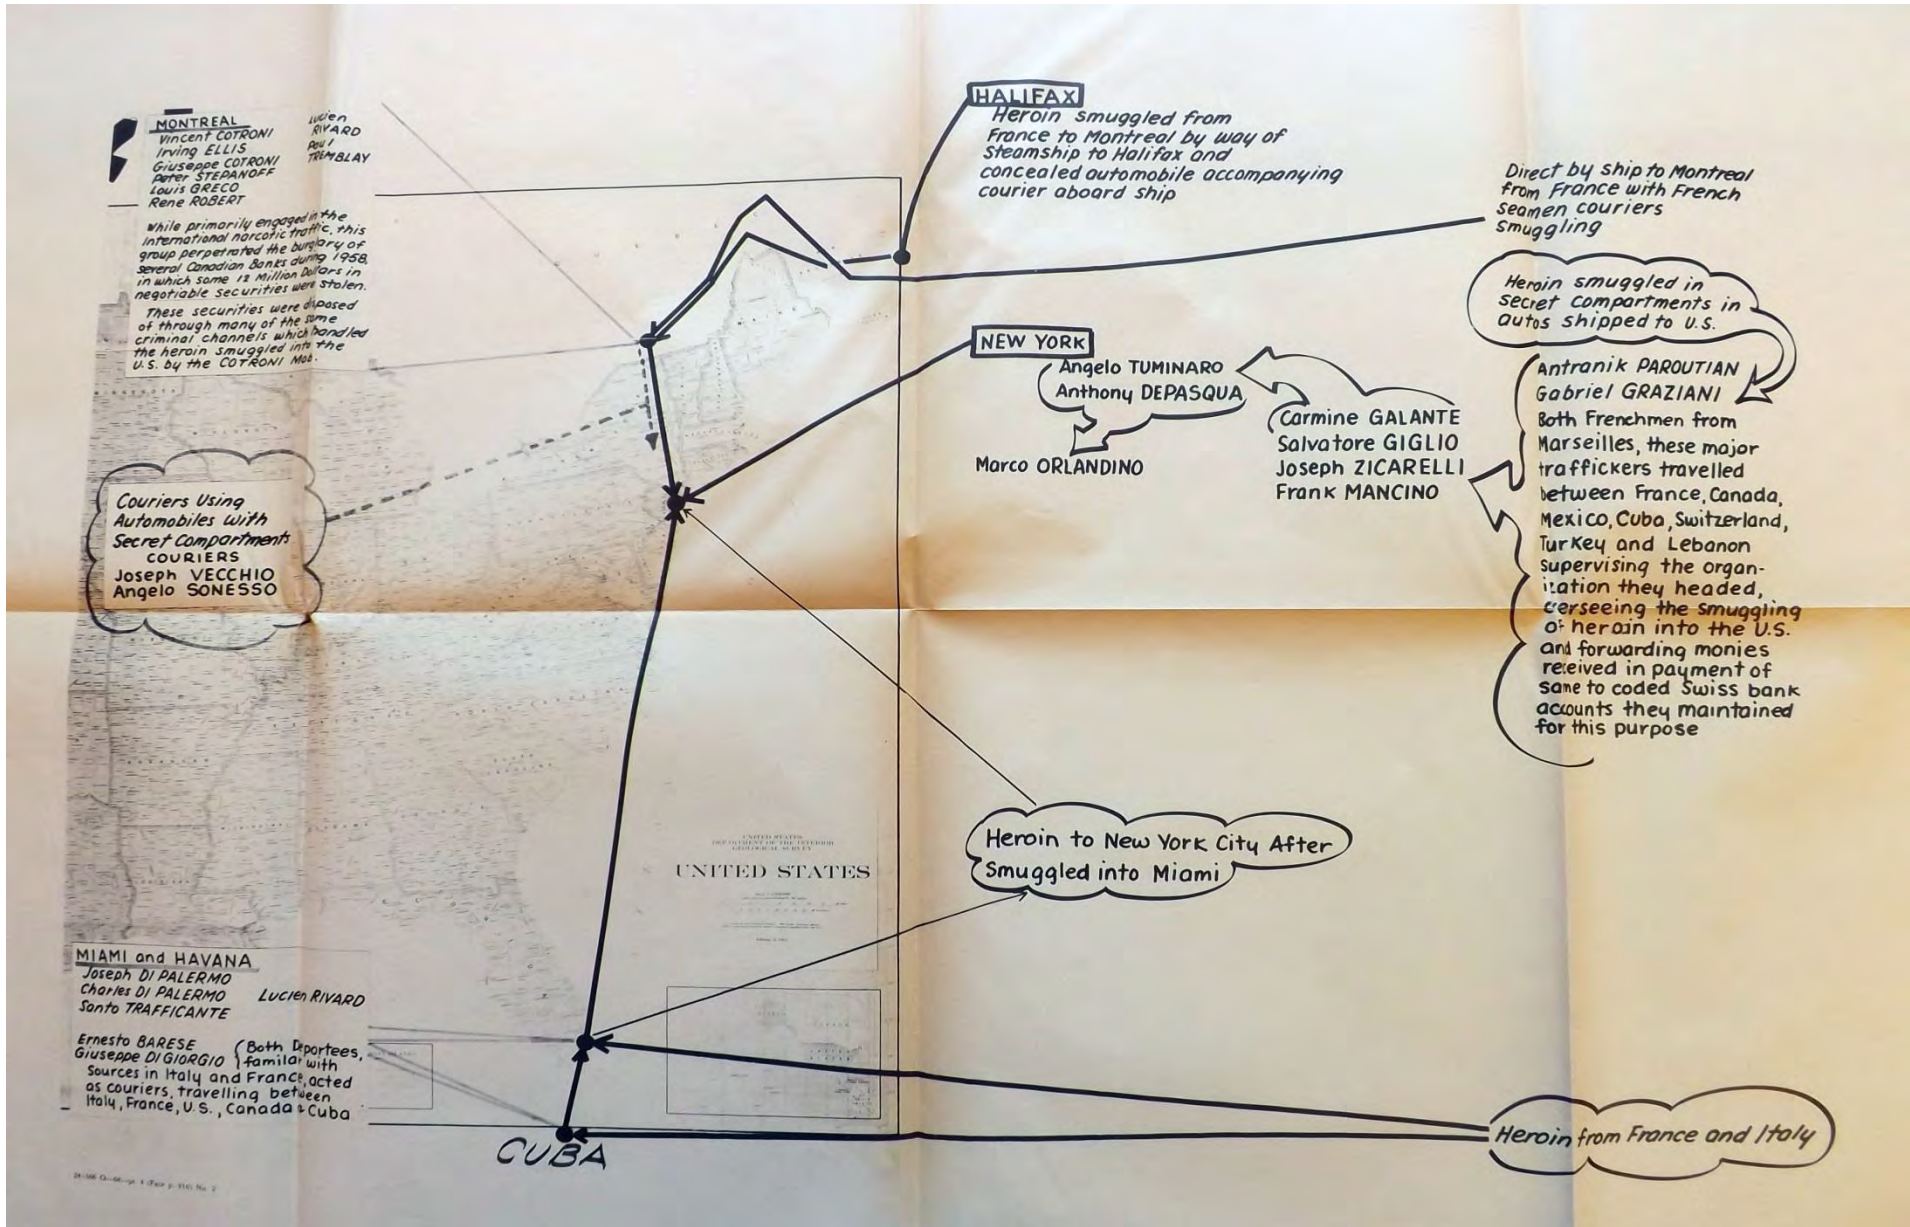 MONTREAL
Vincent COTRONI
Irving ELLIS
Giuseppe COTRONI
Peter STEPANOFF
Louis GRECO
Rene ROBERT
Lucien
RIVARD
Paul
TREMBLAY
While primarily engaged in the
International narcotic traffic, this
group perpetrated the burglary of
several Canadian Banks during 1958,
in which some 12 Million Dollars in
negotiable securities were stolen.
These securities were disposed
of through many of the same
criminal channels which handled
the heroin smuggled into the
U.S. by the COTRONI Mob.
HALIFAX
Heroin smuggled from
France to Montreal by way of
Steamship to Halifax and
concealed automobile accompanying
courier aboard ship
Direct by ship to Montreal
from France with French
Seamen couriers
Smuggling
Heroin smuggled in
secret compartments in
autos shipped to U.S.
NEW YORK
Angelo TUMINARO
Anthony DEPASQUA
Marco ORLANDINO
Carmine GALANTE
Salvatore GIGLIO
Joseph ZICARELLI
Frank MANCINO
Antranik PAROUTIAN
Gabriel GRAZIANI
Both Frenchmen from
Marseilles, these major
traffickers travelled
between France, Canada,
Mexico, Cuba, Switzerland,
Turkey and Lebanon
supervising the organ-
ization they headed,
overseeing the smuggling
of heroin into the U.S.
and forwarding monies
received in payment of
same to coded Swiss bank
accounts they maintained
for this purpose
Couriers Using
Automobiles with
Secret Compartments
COURIERS
Joseph VECCHIO
Angelo SONESSO
Heroin to New York City After
Smuggled into Miami
UNITED STATES
DEPARTMENT OF THE INTERIOR
GEOLOGICAL SURVEY
UNITED STATES
MIAMI and HAVANA
Joseph DI PALERMO
Charles DI PALERMO
Santo TRAFFICANTE
Lucien RIVARD
Ernesto BARESE
Giuseppe DI GIORGIO
Both Deportees,
familar with
Sources in Italy and France, acted
as couriers, travelling between
Italy, France, U.S., Canada & Cuba
CUBA
Heroin from France and Italy